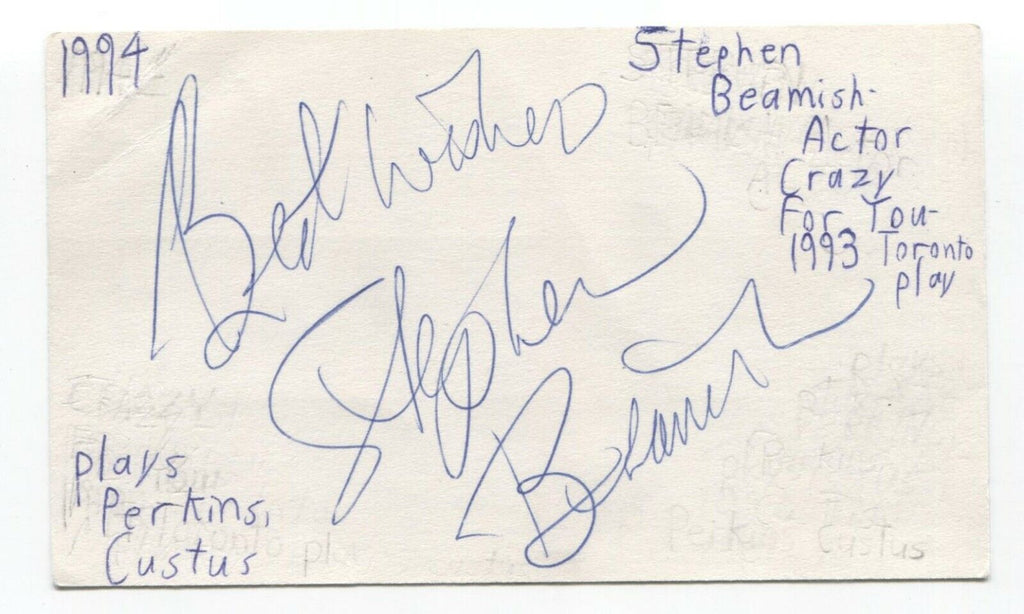 1994
Stephen
Beamish-
Actor
Crazy
For You-
1993 Toronto
play
Best wishes
Stephen
Beamish
plays
Perkins,
Custus